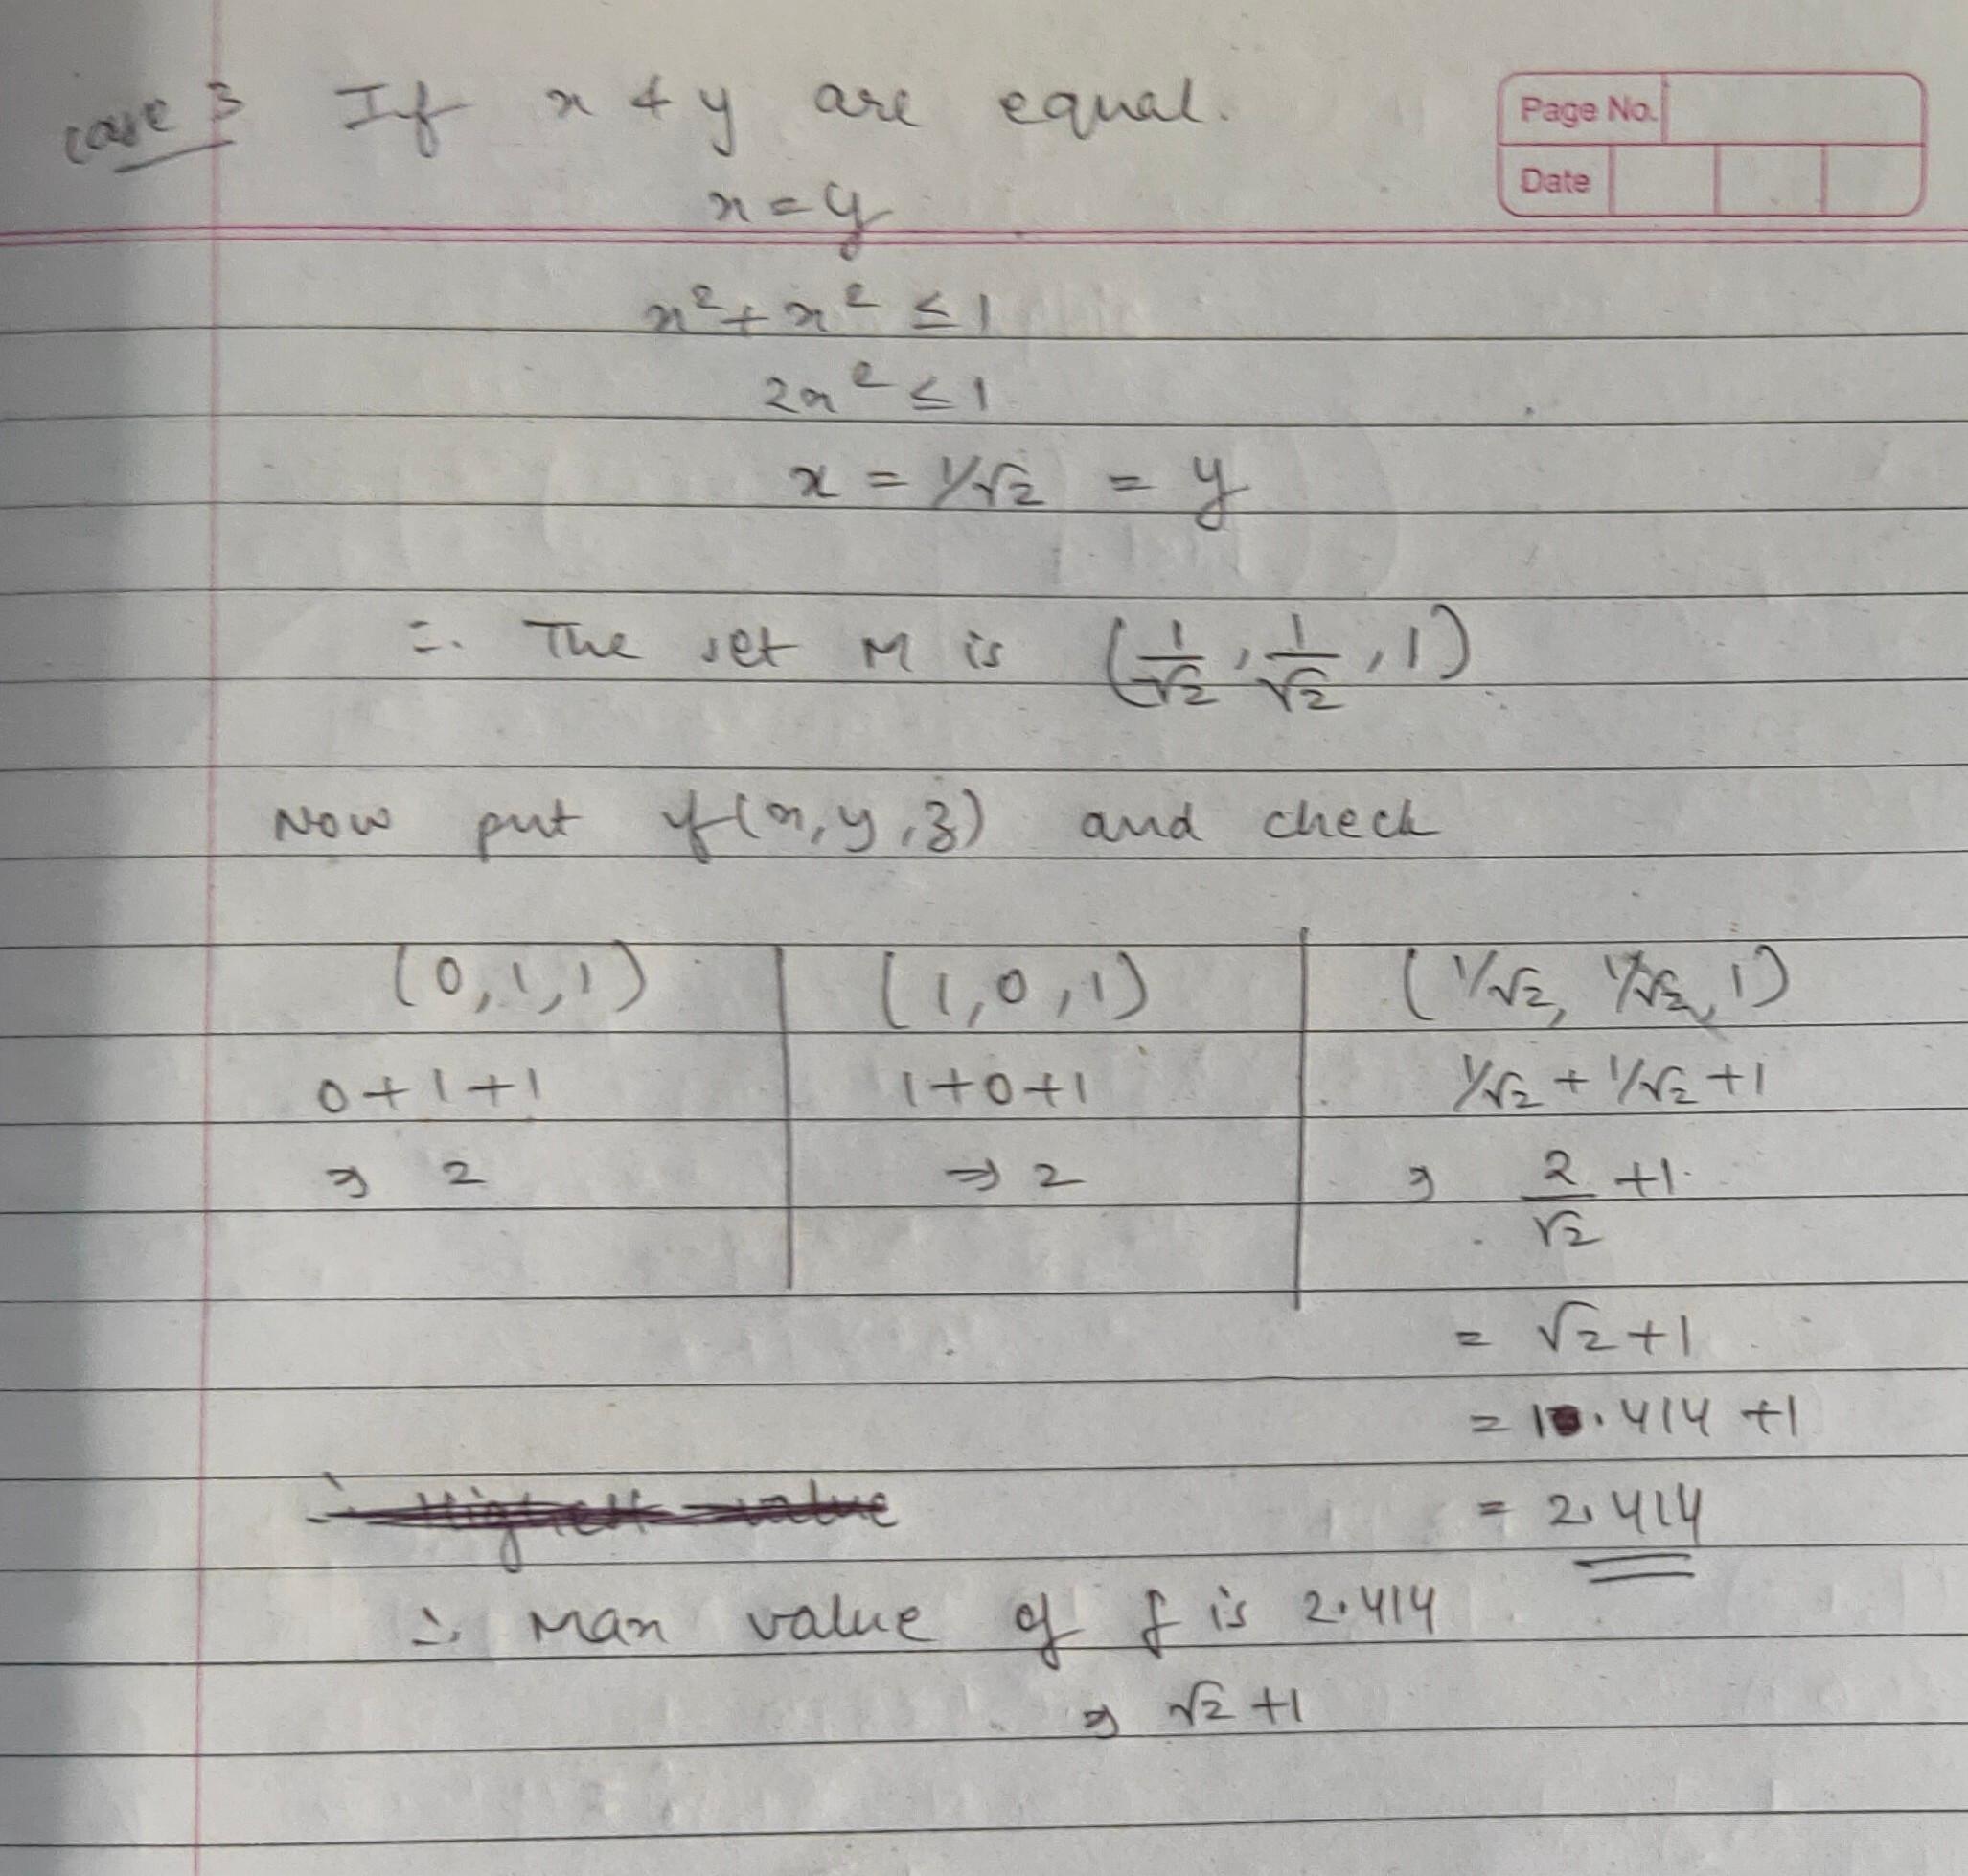 case 3 If x & y are equal.
Page No.
Date
x = y
x² + x² ≤ 1
2x² ≤ 1
x = 1/√2 = y
∴ The set M is (1/√2, 1/√2, 1)
Now put f(x, y, z) and check
(0, 1, 1) (1, 0, 1) (1/√2, 1/√2, 1)
0+1+1 1+0+1 1/√2 + 1/√2 + 1
⇒ 2 ⇒ 2 ⇒ 2/√2 + 1
= √2 + 1
= 1.414 + 1
∴ Highest value = 2.414
∴ Max value of f is 2.414
⇒ √2 + 1